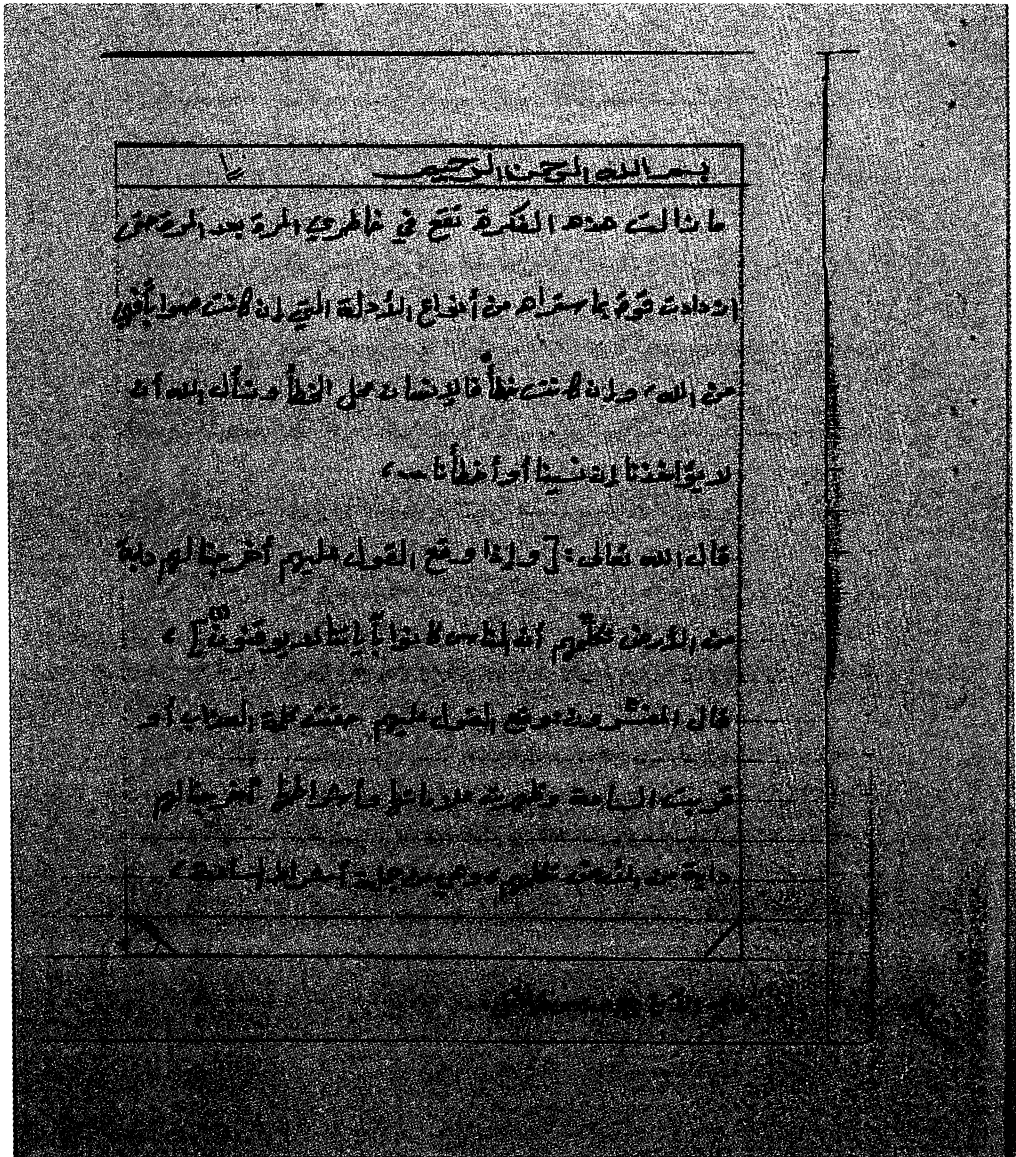 بسم الله الرحمن الرحيم
ما زالت هذه الفكرة تقع في خاطري المرة بعد المرة حتى
ازدادت قوة بما ستراه من أنواع الأدلة التي إن كانت صوابا فهي
من الله، وإن كانت خطأ فالإنسان محل الخطأ ونسأل الله أن
لا يؤاخذنا إن نسينا أو أخطأنا،
قال الله تعالى: [وإذا وقع القول عليهم أخرجنا لهم دابة
من الأرض تكلّمهم أن الناس كانوا بآياتنا لا يوقنون] (١)،
قال المفسرون: وقع القول عليهم حقت كلمة العذاب أو
قربت الساعة وظهرت علاماتها وأشراطها أخرجنا لهم
دابة من الأرض تكلمهم، وهي من جملة أشراط الساعة،